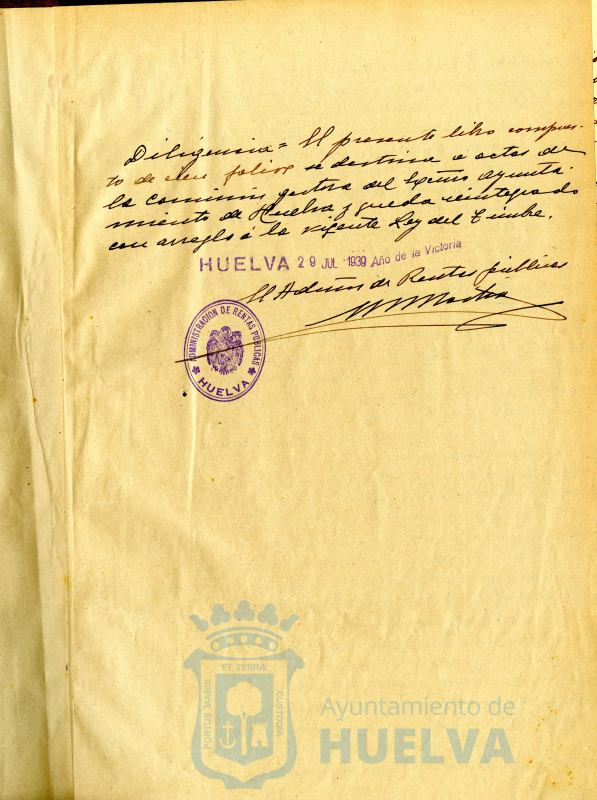 Diligencia = El presente libro compues-
to de cien folios se destina a actas de
la comisión gestora del Excmo Ayunta-
miento de Huelva y queda reintegrado
con arreglo á la vigente Ley del Timbre.
HUELVA 29 JUL 1939 Año de la Victoria
El Admor de Rentas públicas
ADMINISTRACION DE RENTAS PUBLICAS
HUELVA
ET TERRÆ
PORTUS MARIS
CUSTODIA
Ayuntamiento de
HUELVA